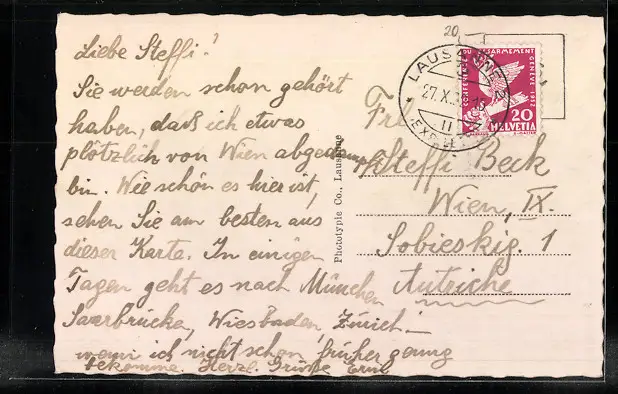 Liebe Steffi!
Sie werden schon gehört
haben, daß ich etwas
plötzlich von Wien abgedampft
bin. Wie schön es hier ist,
sehen Sie am besten aus
dieser Karte. In einigen
Tagen geht es nach München
Saarbrücke, Wiesbaden, Zürich.–
wenn ich nicht schon früher genug
bekomme. Herzl. Grüße
Phototypie Co., Lausanne
20
LAUSANNE 2
27.X.
EXP. LET.
CONFERENCE DU DESARMEMENT GENEVE 1932
20
HELVETIA
Frl.
Steffi Beck
Wien, IX.
Sobieskig. 1
Autriche